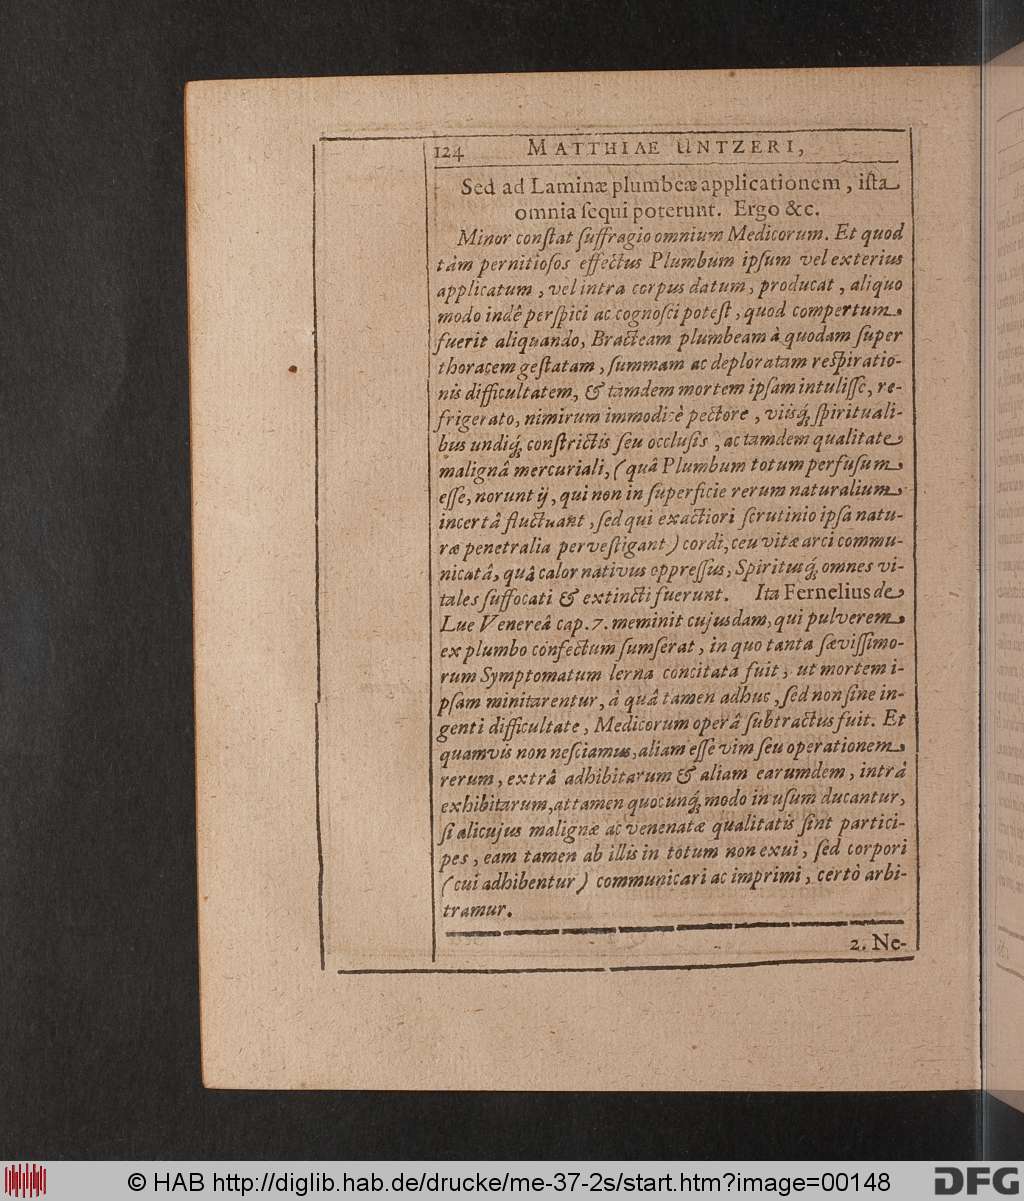 124 MATTHIAE UNTZERI,
Sed ad Laminæ plumbeæ applicationem, iſta
omnia ſequi poterunt. Ergo &c.
Minor conſtat ſuffragio omnium Medicorum. Et quod
tàm pernitioſos effectus Plumbum ipſum vel exterius
applicatum, vel intra corpus datum, producat, aliquo
modo indè perſpici ac cognoſci poteſt, quod compertum
fuerit aliquando, Bracteam plumbeam à quodam ſuper
thoracem geſtatam, ſummam ac deploratam reſpiratio-
nis difficultatem, & tamdem mortem ipſam intuliſſe, re-
frigerato, nimirum immodicè pectore, viisq́; ſpirituali-
bus undiq́; conſtrictis ſeu occluſis, ac tamdem qualitate
malignâ mercuriali, (quâ Plumbum totum perfuſum
eſſe, norunt ij, qui non in ſuperficie rerum naturalium
incertâ fluctuant, ſed qui exactiori ſcrutinio ipſa natu-
ræ penetralia perveſtigant) cordi, ceu vitæ arci commu-
nicatâ, quâ calor nativus oppreſſus, Spiritusq́; omnes vi-
tales ſuffocati & extincti fuerunt. Ita Fernelius de
Lue Venereâ cap. 7. meminit cujusdam, qui pulverem
ex plumbo confectum ſumſerat, in quo tanta ſæviſſimo-
rum Symptomatum lerna concitata fuit, ut mortem i-
pſam minitarentur, à quâ tamen adhuc, ſed non ſine in-
genti difficultate, Medicorum operâ ſubtractus fuit. Et
quamvis non neſciamus, aliam eſſe vim ſeu operationem
rerum, extrâ adhibitarum & aliam earumdem, intrà
exhibitarum, attamen quocunq́; modo in uſum ducantur,
ſi alicujus malignæ ac venenatæ qualitatis ſint partici-
pes, eam tamen ab illis in totum non exui, ſed corpori
(cui adhibentur) communicari ac imprimi, certò arbi-
tramur.
2. Ne-
© HAB http://diglib.hab.de/drucke/me-37-2s/start.htm?image=00148 DFG